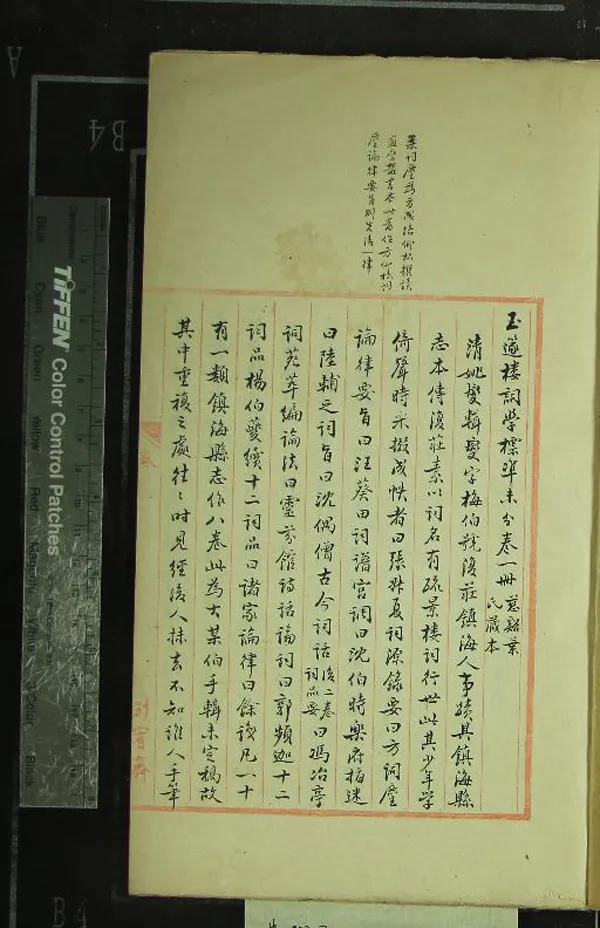 葉詞塵為方成培仰松撰讀
畫齋叢書本此當作方仰松詞
塵論律要旨則另為一種
玉篴樓詞學標準未分卷一冊慈谿葉
氏藏本
清姚燮輯燮字梅伯號復莊鎮海人事蹟具鎮海縣
志本傳復莊素以詞名有疏景樓詞行世此其少年學
倚聲時采掇成帙者曰張叔夏詞源錄要曰方詞塵
論律要旨曰汪葵田詞譜宮調曰沈伯時樂府指迷
曰陸輔之詞旨曰沈偶僧古今詞話後二卷
詞品要曰馮冶亭
詞苑萃編論法曰靈芬館詩話論詞曰郭頻迦十二
詞品楊伯夔續十二詞品曰諸家論律曰餘淺凡一十
有一類鎮海縣志作八卷此為大某伯手輯未定稿故
其中重複之處往〻時見經後人抹去不知誰人手筆
TIFFEN Color Control Patches
Blue
Cyan
Green
Yellow
Red
Magenta
White
Color
Black
B4
A
B4